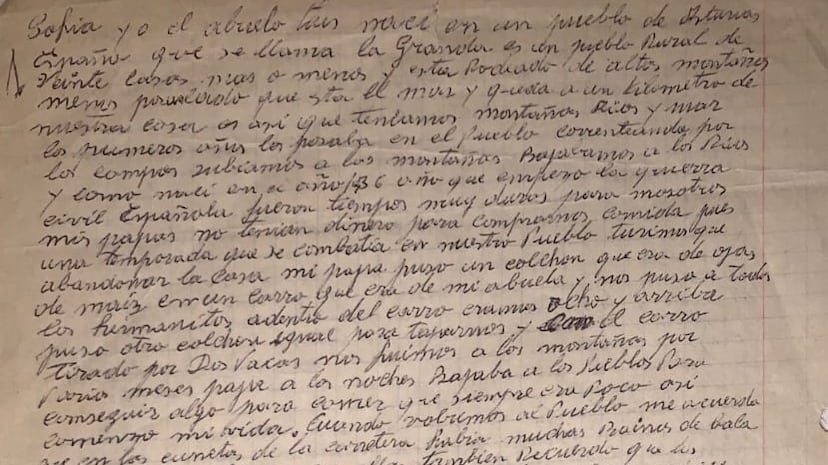 Sofia yo el abuelo Luis naci en un pueblo de Asturias
España que se llama la Granda es un pueblo Rural de
Veinte casas mas o menos y esta Rodiado de altas montañas
menos por el lado que esta el mar y queda a un kilometro de
nuestra casa es asi que teniamos montañas Rios y mar
los primeros años los pasaba en el Pueblo correteando por
los campos subiamos a las montañas Bajabamos a los Rios
y como naci en el año 36 año que empezo la guerra
civil Española fueron tiempos muy duros para nosotros
mis papas no tenian dinero para comprarnos comida pues
una temporada que se combatia en nuestro Pueblo tuvimos que
abandonar la casa mi papa puso un colchon que era de ojas
de maiz en un carro que era de mi abuela y nos puso a todos
los hermanitos adentro del carro eramos ocho y arriba
puso otro colchon igual para taparnos y el carro
tirado por Dos Vacas nos fuimos a las montañas por
Varios meses papa a las noches Bajaba a los Pueblos Para
conseguir algo para comer que siempre era Poco asi
comenzo mi vida. Cuando volvimos al Pueblo me acuerdo
que en las cunetas de la carretera Habia muchas Bainas de bala
tambien Recuerdo que los